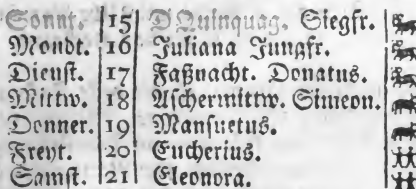 Sonnt. 15 D Quinquag. Siegfr.
Mondt. 16 Juliana Jungfr.
Dienst. 17 Faßnacht. Donatus.
Mittw. 18 Aschermittw. Simeon.
Donner. 19 Mansuetus.
Freyt. 20 Eucherius.
Samst. 21 Eleonora.